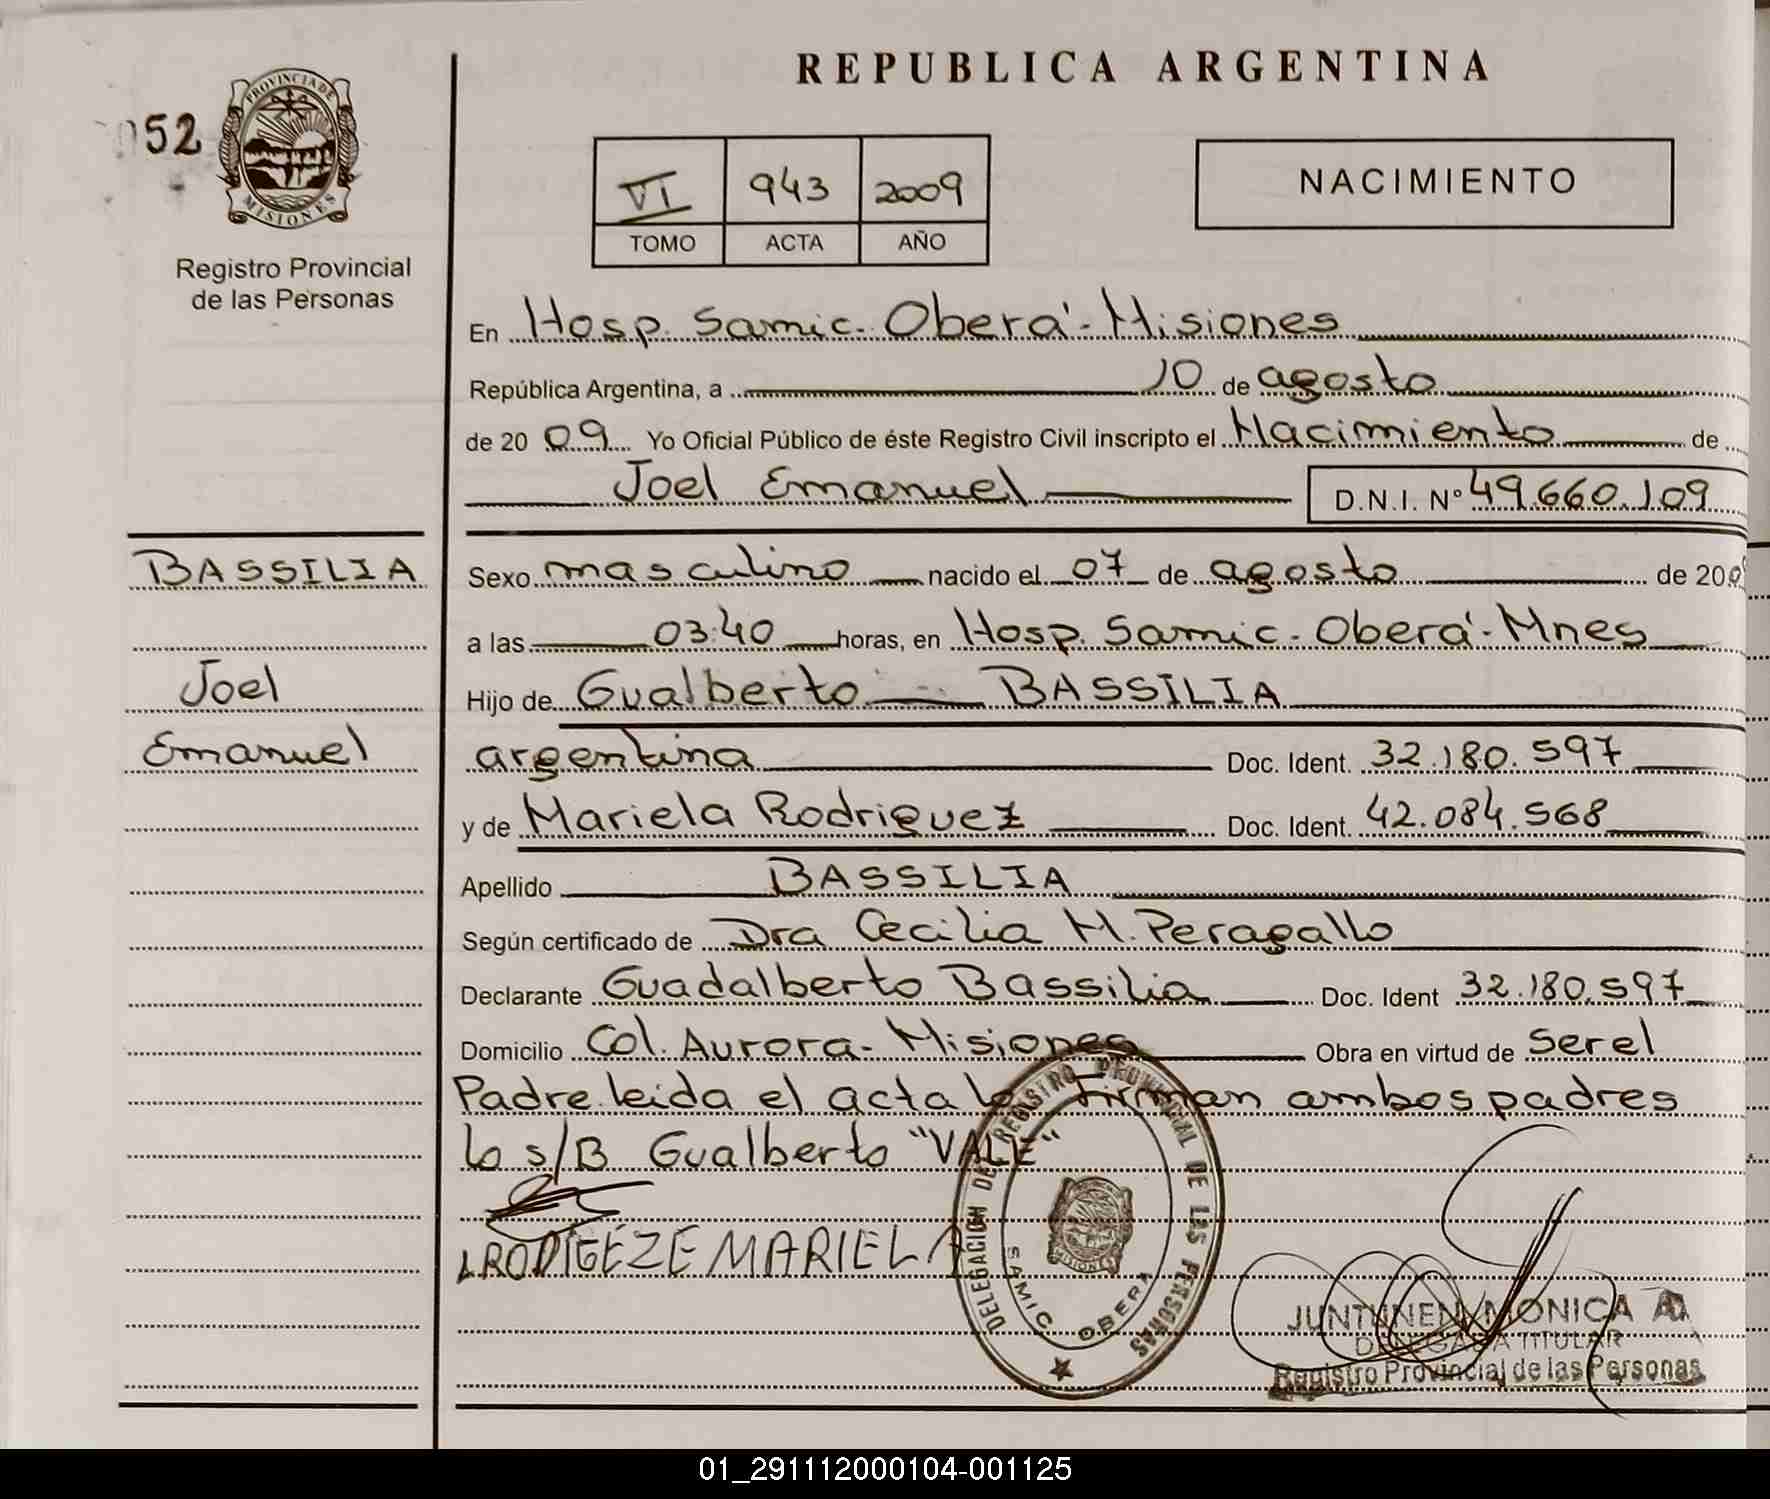 REPUBLICA ARGENTINA
052
PROVINCIA DE
MISIONES
Registro Provincial
de las Personas
VI 943 2009
TOMO ACTA AÑO
NACIMIENTO
En Hosp. Samic. Oberá - Misiones
República Argentina, a 10 de agosto
de 20 09 Yo Oficial Público de éste Registro Civil inscripto el Nacimiento de
Joel Emanuel D.N.I. Nº 49.660.109
BASSILIA
Joel
Emanuel
Sexo masculino nacido el 07 de agosto de 2009
a las 03:40 horas, en Hosp. Samic. Oberá - Mnes
Hijo de Gualberto BASSILIA
argentina Doc. Ident. 32.180.597
y de Mariela Rodriguez Doc. Ident. 42.084.568
Apellido BASSILIA
Según certificado de Dra Cecilia M. Peragallo
Declarante Guadalberto Bassilia Doc. Ident 32.180.597
Domicilio Col. Aurora - Misiones Obra en virtud de Ser el
Padre. leida el acta la firman ambos padres
lo s/B Gualberto "VALE"
RODIGÉZE MARIELA
DELEGACION DEL REGISTRO PROVINCIAL DE LAS PERSONAS
MISIONES
SAMIC OBERA
JUNTUNEN MONICA A
DELEGADA TITULAR
Registro Provincial de las Personas
01_291112000104-001125